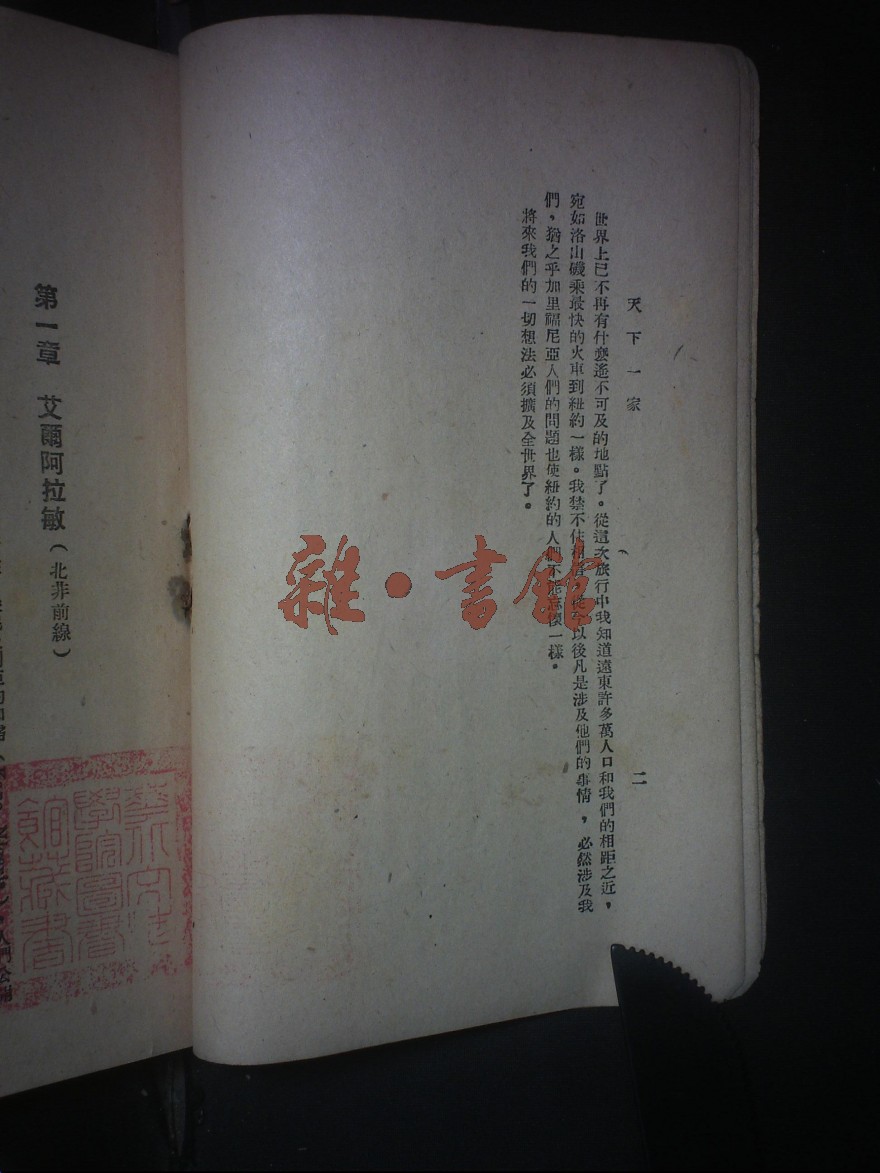 天下一家
二
世界上已不再有什麼遙不可及的地點了。從這次旅行中我知道遠東許多萬人口和我們的相距之近，
宛如洛山磯乘最快的火車到紐約一樣。我禁不住相信，從今以後凡是涉及他們的事情，必然涉及我
們，猶之乎加里福尼亞人們的問題也使紐約的人們不能忘懷一樣。
將來我們的一切想法必須擴及全世界了。
第一章 艾爾阿拉敏（北非前線）
雜·書館
學院圖書
館藏書